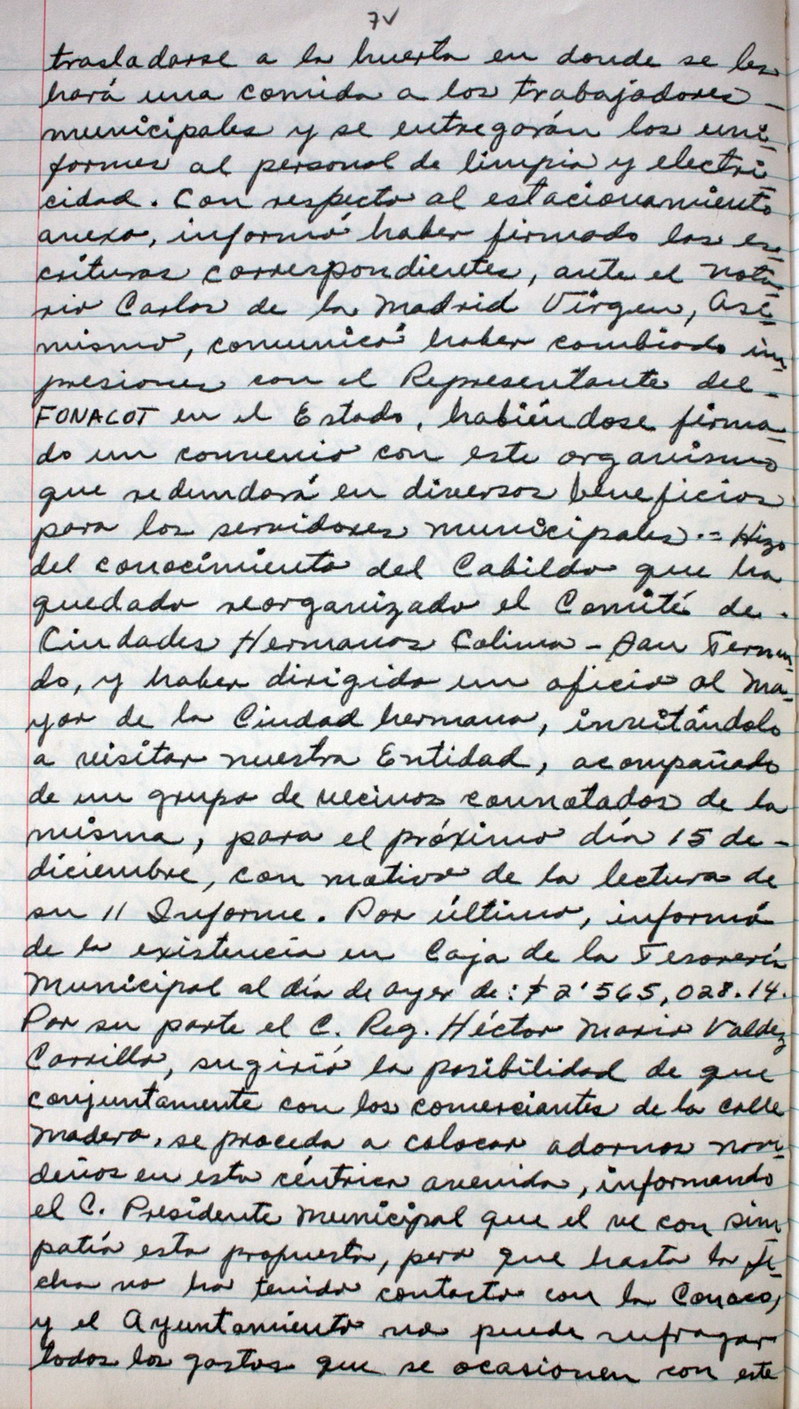 7v
trasladarse a la huerta en donde se les
hará una comida a los trabajadores -
municipales y se entregarán los uni-
formes al personal de limpia y electri-
cidad. Con respecto al estacionamiento
anexo, informó haber firmado las es-
crituras correspondientes, ante el nota-
rio Carlos de la Madrid Virgen, Asi-
mismo, comunicó haber cambiado im-
presiones con el Representante del -
FONACOT en el Estado, habiéndose firma-
do un convenio con este organismo
que redundará en diversos beneficios
para los servidores municipales.= Hizo
del conocimiento del Cabildo que ha
quedado reorganizado el Comité de -
Ciudades Hermanas Colima - San Fernan-
do, y haber dirigido un oficio al Ma-
yor de la Ciudad hermana, invitándolo
a visitar nuestra Entidad, acompañado
de un grupo de vecinos connotados de la
misma, para el próximo día 15 de -
diciembre, con motivo de la lectura de
su II Informe. Por último, informó
de la existencia en Caja de la Tesorería
Municipal al día de ayer de: $2'565,028.14.
Por su parte el C. Reg. Héctor Mario Valdez
Carrillo, sugirió la posibilidad de que
conjuntamente con los comerciantes de la calle
Madero, se proceda a colocar adornos navi-
deños en esta céntrica avenida, informando
el C. Presidente Municipal que el ve con sim
patía esta propuesta, pero que hasta la fe-
cha no ha tenido contacto con la Canaco,
y el Ayuntamiento no puede sufragar
todos los gastos que se ocasionen con este